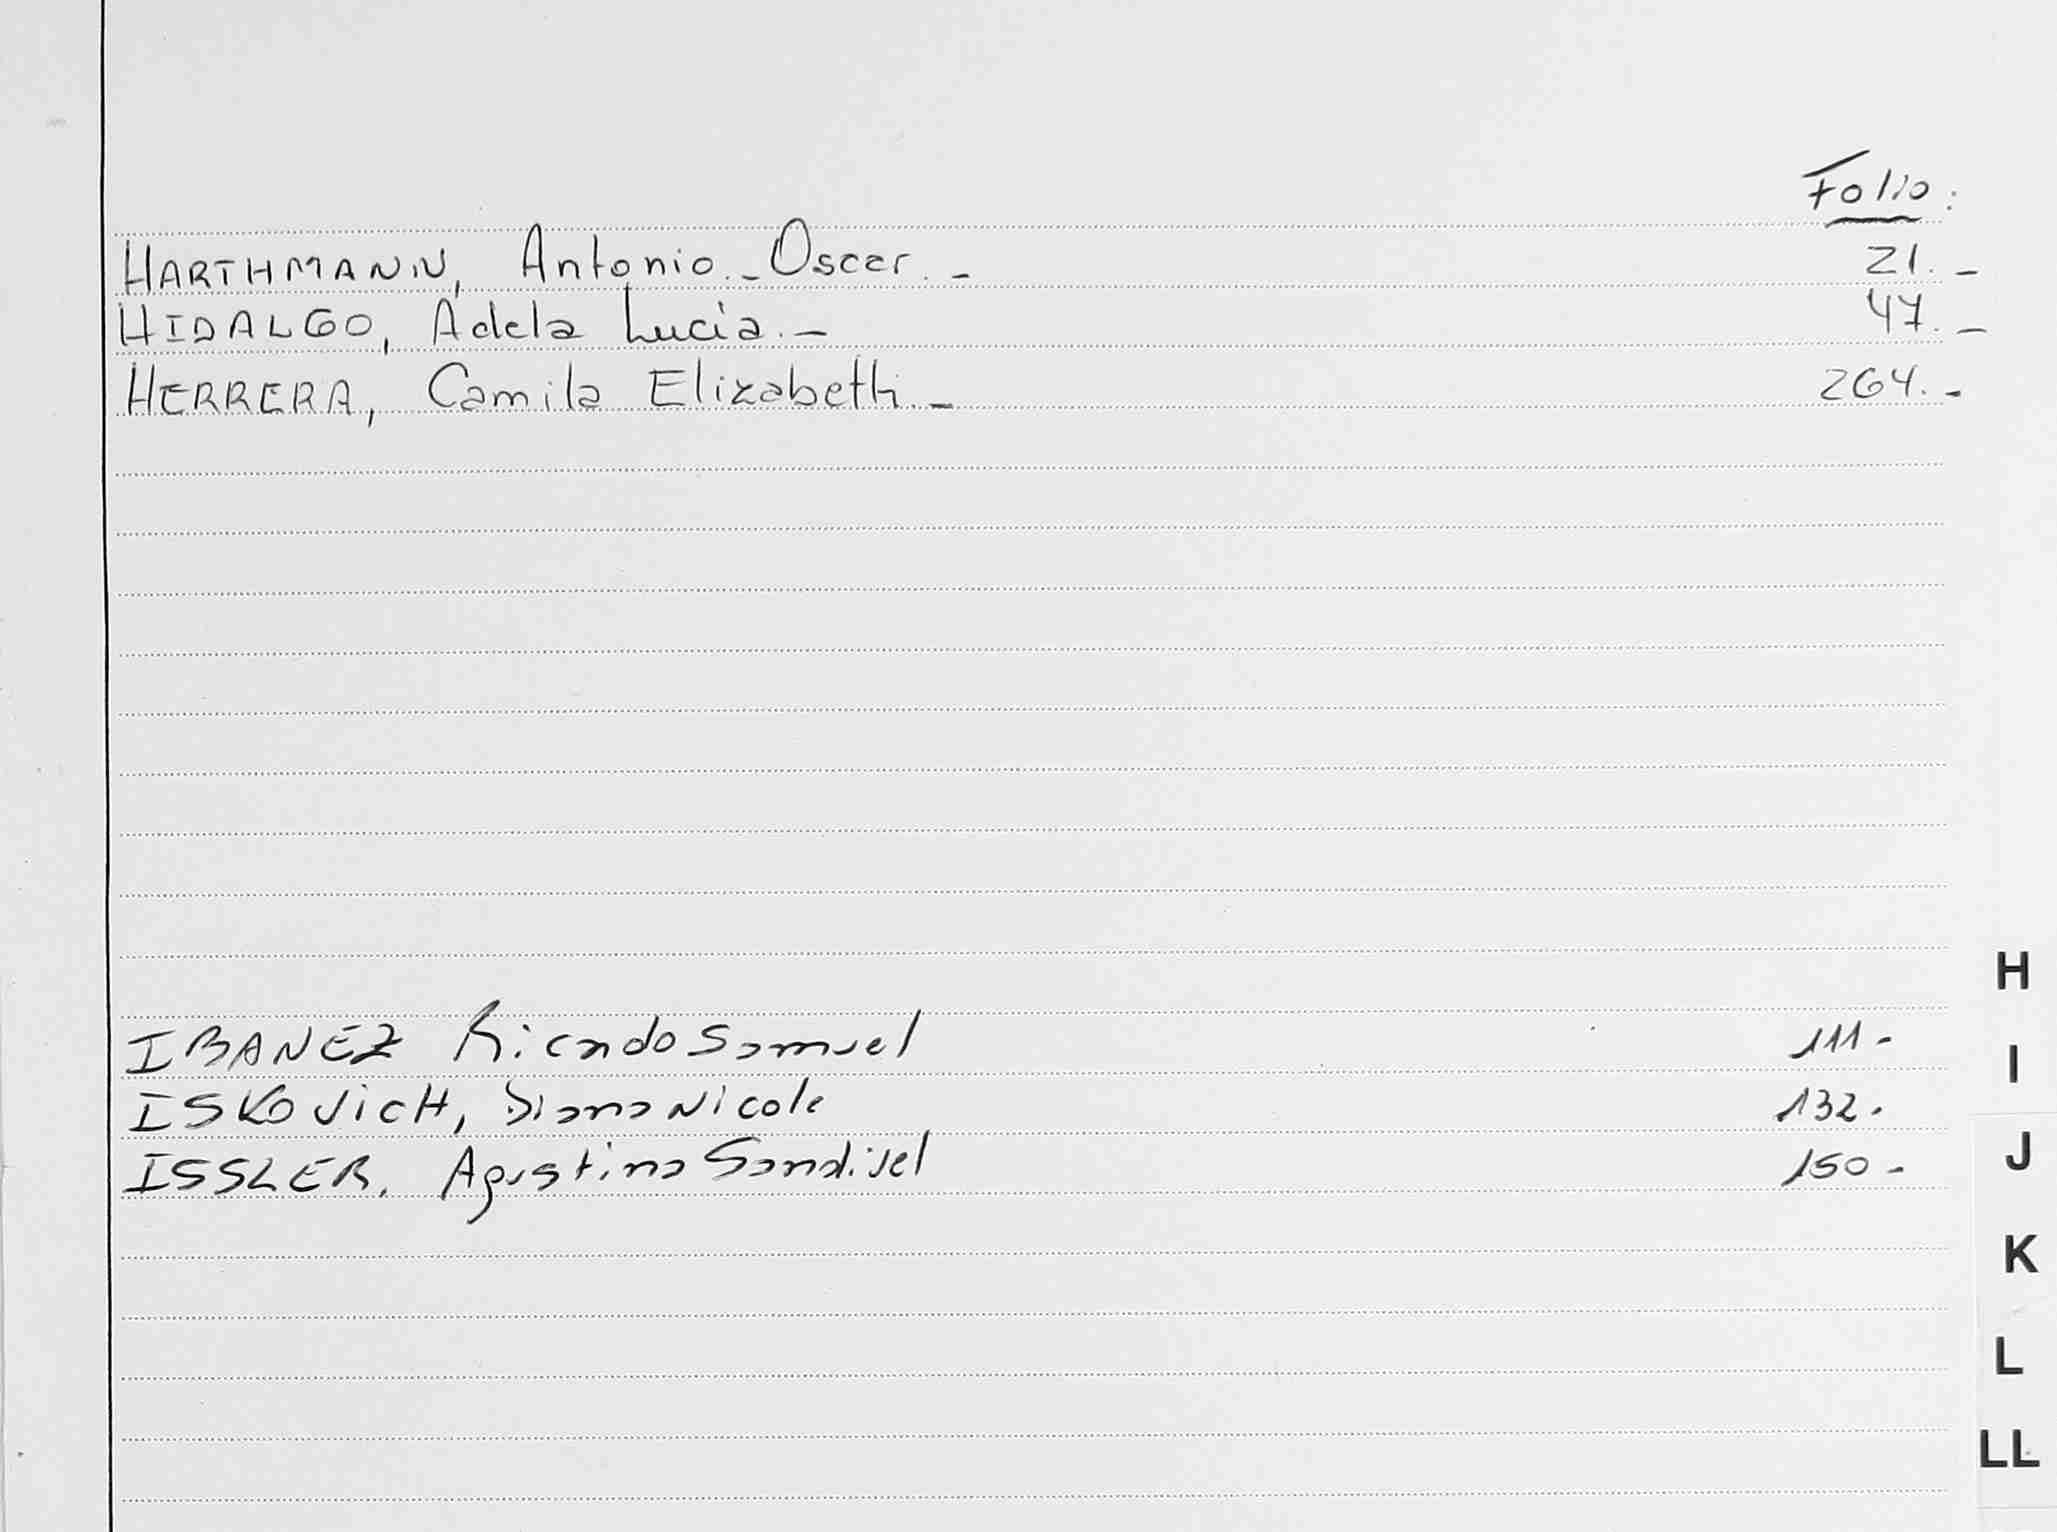 Folio:
HARTHMANN, Antonio.- Oscar.- 21.-
HIDALGO, Adela Lucia.- 47.-
HERRERA, Camila Elizabeth.- 264.-
H
IBANEZ Ricardo Samuel 111-
I
ISKOVICH, Diana Nicole 132.
J
ISSLER, Agustina 150-
K
L
LL